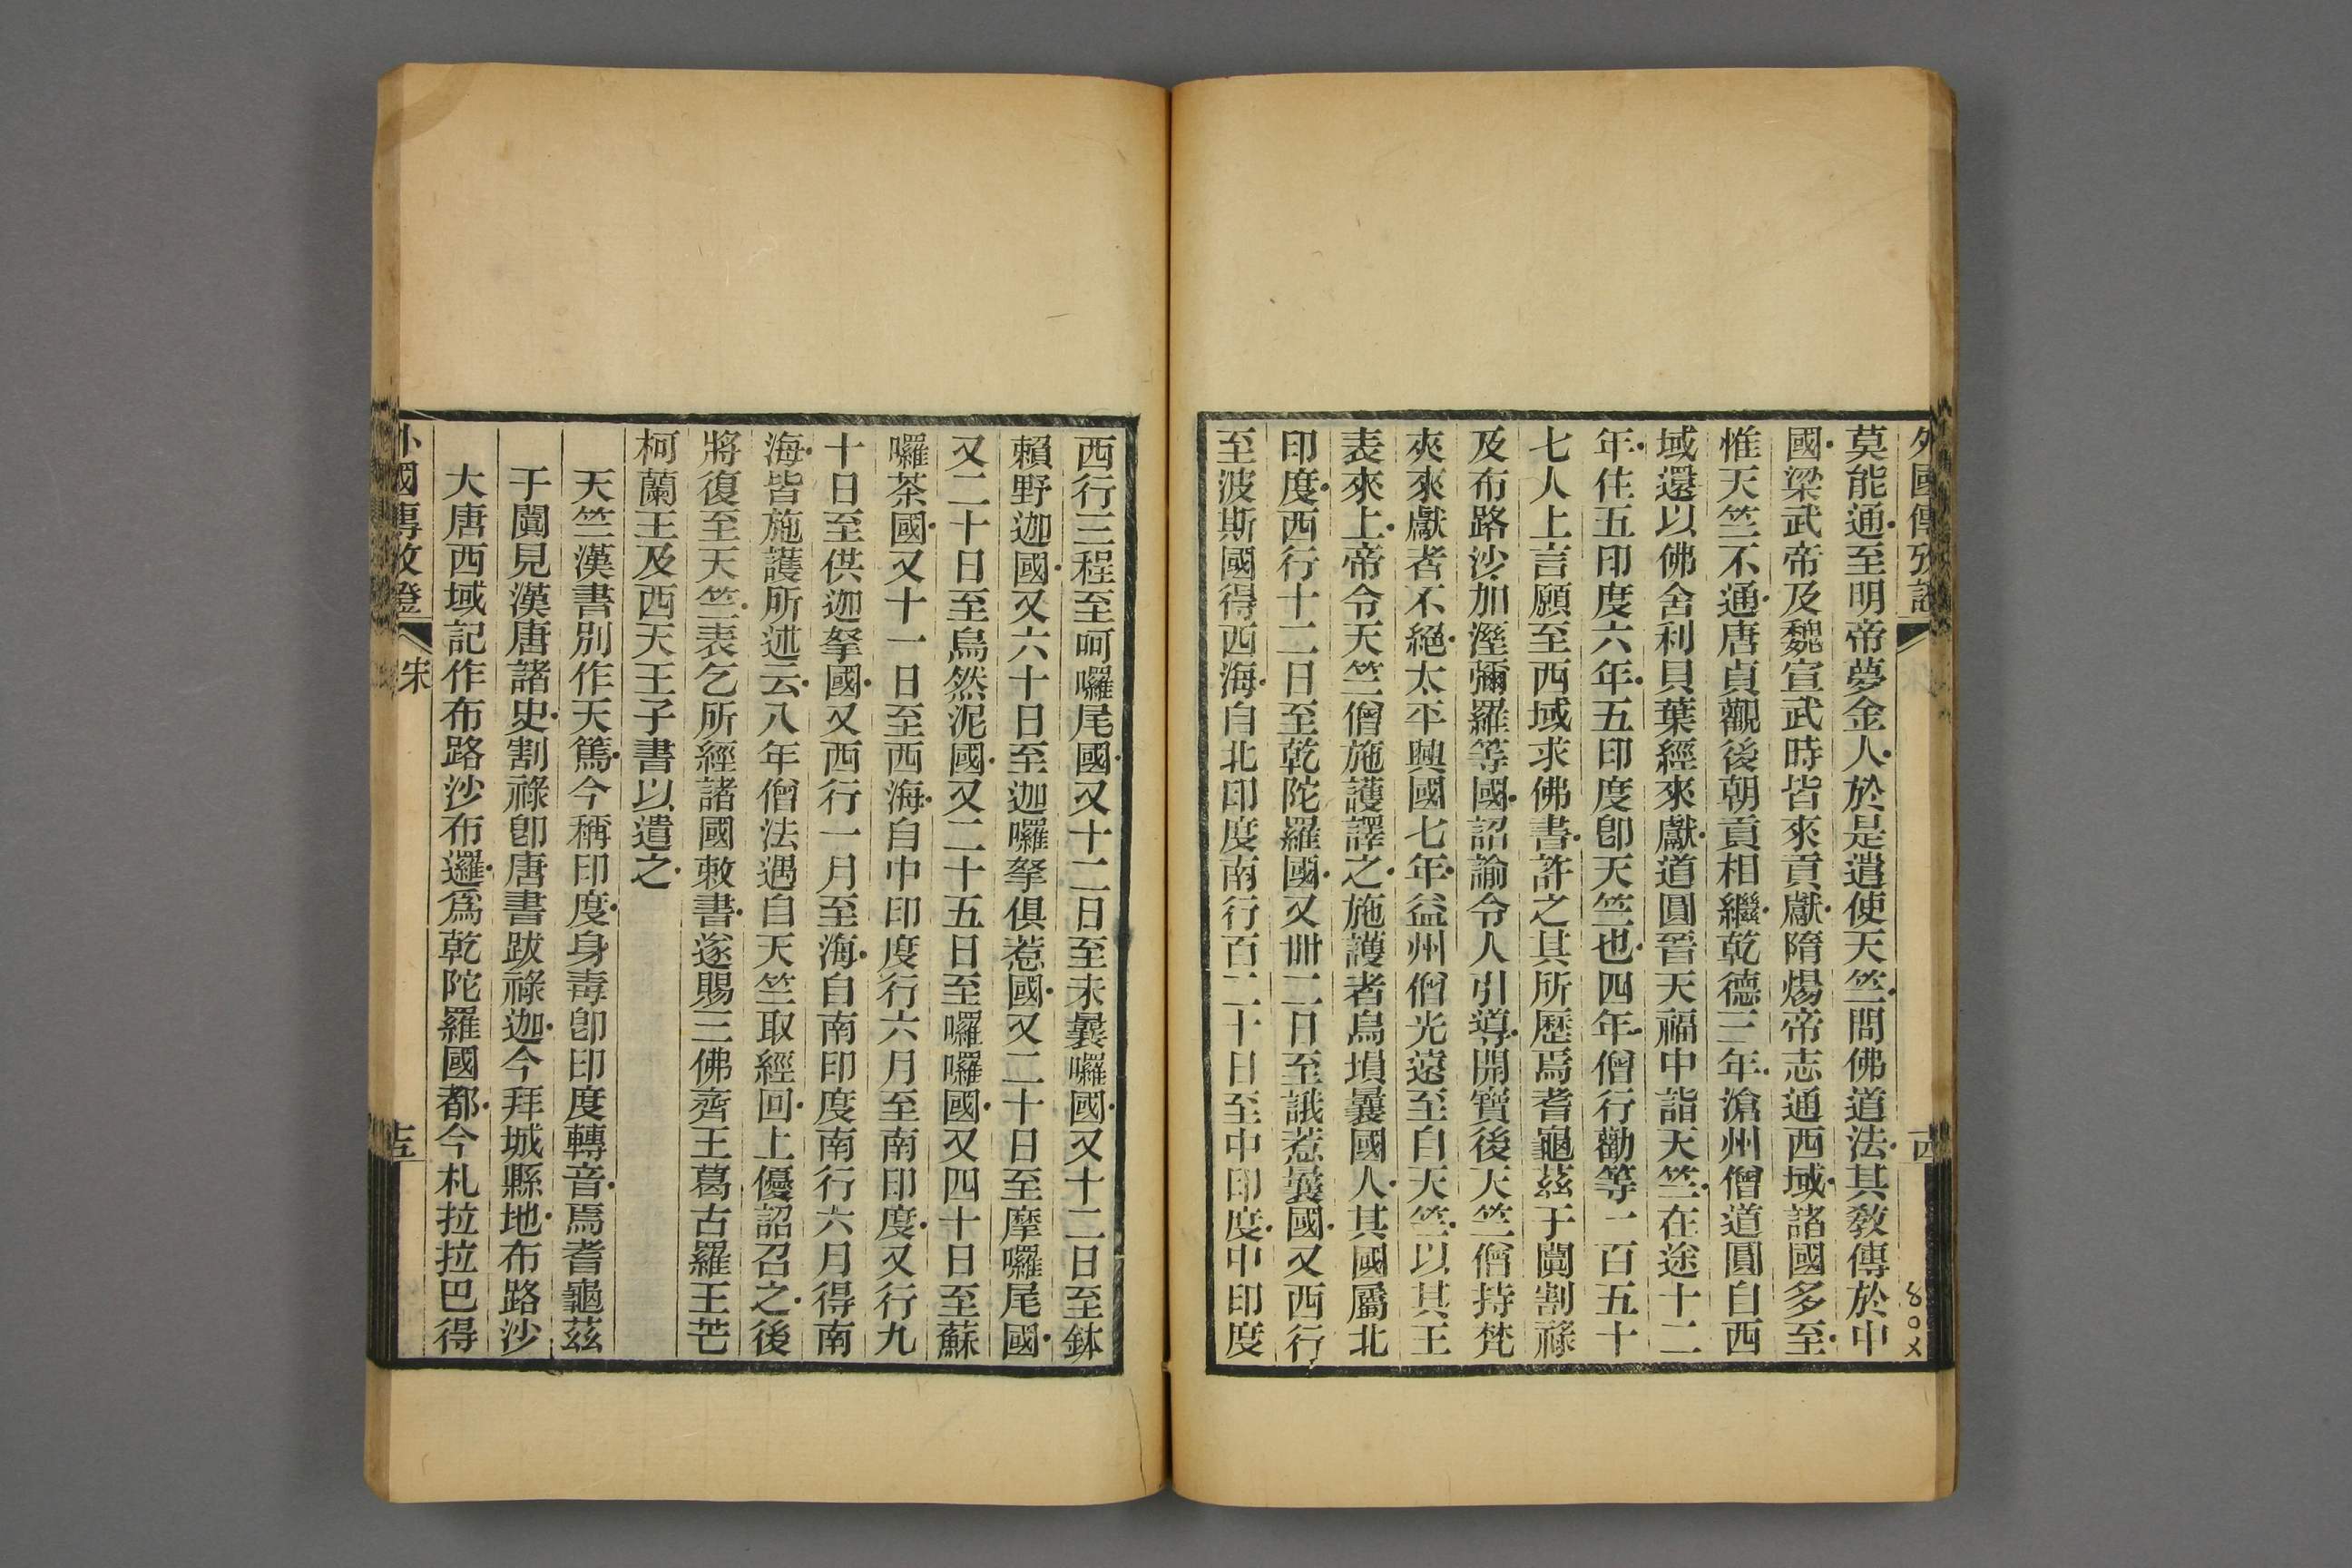 外國傳攷證
十四
莫能通至明帝夢金人於是遣使天竺問佛道法其敎傳於中
國梁武帝及魏宣武時皆來貢獻隋煬帝志通西域諸國多至
惟天竺不通唐貞觀後朝貢相繼乾德三年滄州僧道圓自西
域還以佛舍利貝葉經來獻道圓晉天福中詣天竺在途十二
年住五印度六年五印度卽天竺也四年僧行勤等一百五十
七人上言願至西域求佛書許之其所歷焉耆龜茲于闐割祿
及布路沙加溼彌羅等國詔諭令人引導開寶後天竺僧持梵
夾來獻者不絕太平興國七年益州僧光遠至自天竺以其王
表來上帝令天竺僧施護譯之施護者烏塤曩國人其國屬北
印度西行十二日至乾陀羅國又卌二日至誐惹曩國又西行
至波斯國得西海自北印度南行百二十日至中印度中印度
西行三程至呵囉尾國又十二日至末曩囉國又十二日至鉢
賴野迦國又六十日至迦囉拏俱惹國又二十日至摩囉尾國
又二十日至烏然泥國又二十五日至囉囉國又四十日至蘇
囉茶國又十一日至西海自中印度行六月至南印度又行九
十日至供迦拏國又西行一月至海自南印度南行六月得南
海皆施護所述云八年僧法遇自天竺取經回上優詔召之後
將復至天竺表乞所經諸國敕書遂賜三佛齊王葛古羅王芒
柯蘭王及西天王子書以遣之
天竺漢書別作天篤今稱印度身毒卽印度轉音焉耆龜茲
于闐見漢唐諸史割祿卽唐書跋祿迦今拜城縣地布路沙
大唐西域記作布路沙布邏爲乾陀羅國都今札拉拉巴得
外國傳攷證
宋
十五